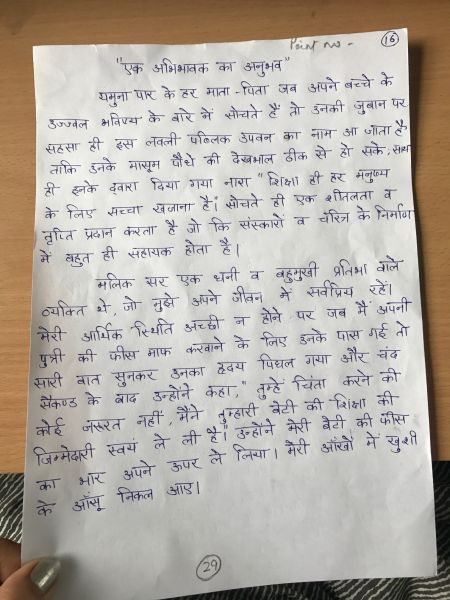 Point no -
16
"एक अभिभावक का अनुभव"
यमुना पार के हर माता-पिता जब अपने बच्चे के
उज्ज्वल भविष्य के बारे में सोचते हैं तो उनकी जुबान पर
सहसा ही इस लवली पब्लिक उपवन का नाम आ जाता है
ताकि उनके मासूम पौधे की देखभाल ठीक से हो सके, साथ
ही इनके द्वारा दिया गया नारा "शिक्षा ही हर मनुष्य
के लिए सच्चा खजाना है" सोचते ही एक शीतलता व
तृप्ति प्रदान करता है जो कि संस्कारों व चरित्र के निर्माण
में बहुत ही सहायक होता है।
मलिक सर एक धनी व बहुमुखी प्रतिभा वाले
व्यक्ति थे, जो मुझे अपने जीवन में सर्वप्रिय रहें।
मेरी आर्थिक स्थिति अच्छी न होने पर जब मैं अपनी
पुत्री की फीस माफ करवाने के लिए उनके पास गई तो
सारी बात सुनकर उनका हृदय पिघल गया और चंद
सैकण्ड के बाद उन्होंने कहा, "तुम्हें चिंता करने की
कोई जरूरत नहीं, मैंने तुम्हारी बेटी की शिक्षा की
जिम्मेदारी स्वयं ले ली है।" उन्होंने मेरी बेटी की फीस
का भार अपने ऊपर ले लिया। मेरी आँखों में खुशी
के आँसू निकल आए।
29